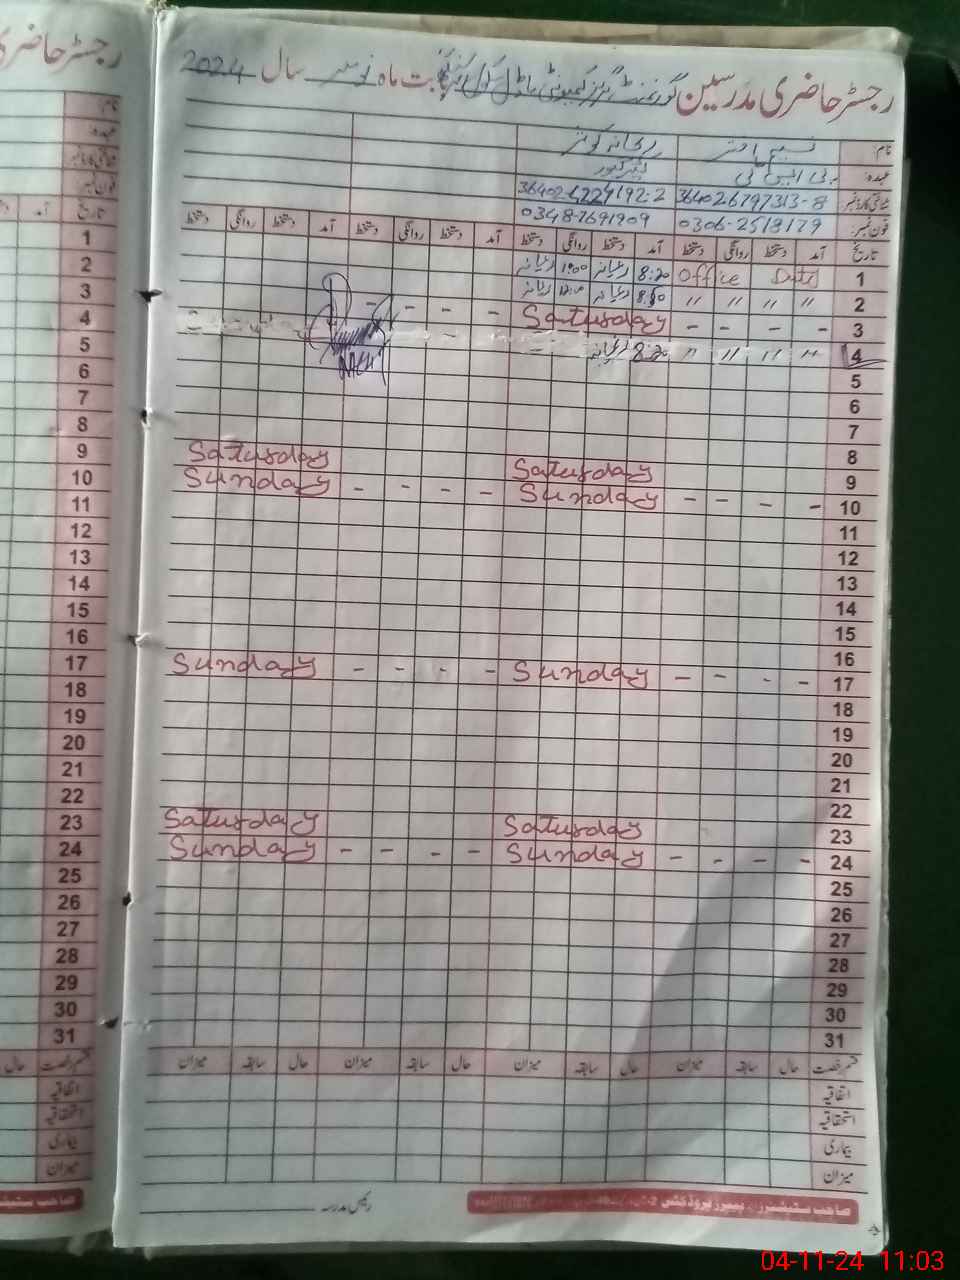 رجسٹر حاضری مدرسین گورنمنٹ گرلز کمیونٹی ماڈل سکول بابت ماہ نومبر سال 2024
نام: نسیم اختر ریحانہ کوثر
عہدہ: پی ایس ٹی ٹیچر
شناختی کارڈ نمبر 36402-6797313-8 36402-4229192-2
فون نمبر: 0306-2518179 0348-7691909
تاریخ آمد دستخط روانگی دستخط آمد دستخط روانگی دستخط آمد دستخط روانگی دستخط آمد دستخط روانگی دستخط
1 Office Duty 8:20 ریحانہ 1:00 ریحانہ
2 " " " " 8:50 ریحانہ 12:00 ریحانہ
3 - - - - Saturday - - - -
4 " " " " 8:20 ریحانہ
5
6
7
8
9 Saturday Saturday
10 - - - - Sunday - - - - Sunday
11
12
13
14
15
16
17 - - - - Sunday - - - - Sunday
18
19
20
21
22
23 Saturday Saturday
24 - - - - Sunday - - - - Sunday
25
26
27
28
29
30
31
قسم رخصت حال سابقہ میزان حال سابقہ میزان حال سابقہ میزان حال سابقہ میزان
اتفاقیہ
استحقاقیہ
بیماری
میزان
رئیس مدرسہ
رجسٹر حاضری
نام:
عہدہ:
شناختی کارڈ نمبر
فون نمبر:
تاریخ آمد
1
2
3
4
5
6
7
8
9
10
11
12
13
14
15
16
17
18
19
20
21
22
23
24
25
26
27
28
29
30
31
قسم رخصت حال
اتفاقیہ
استحقاقیہ
بیماری
میزان
04-11-24 11:03